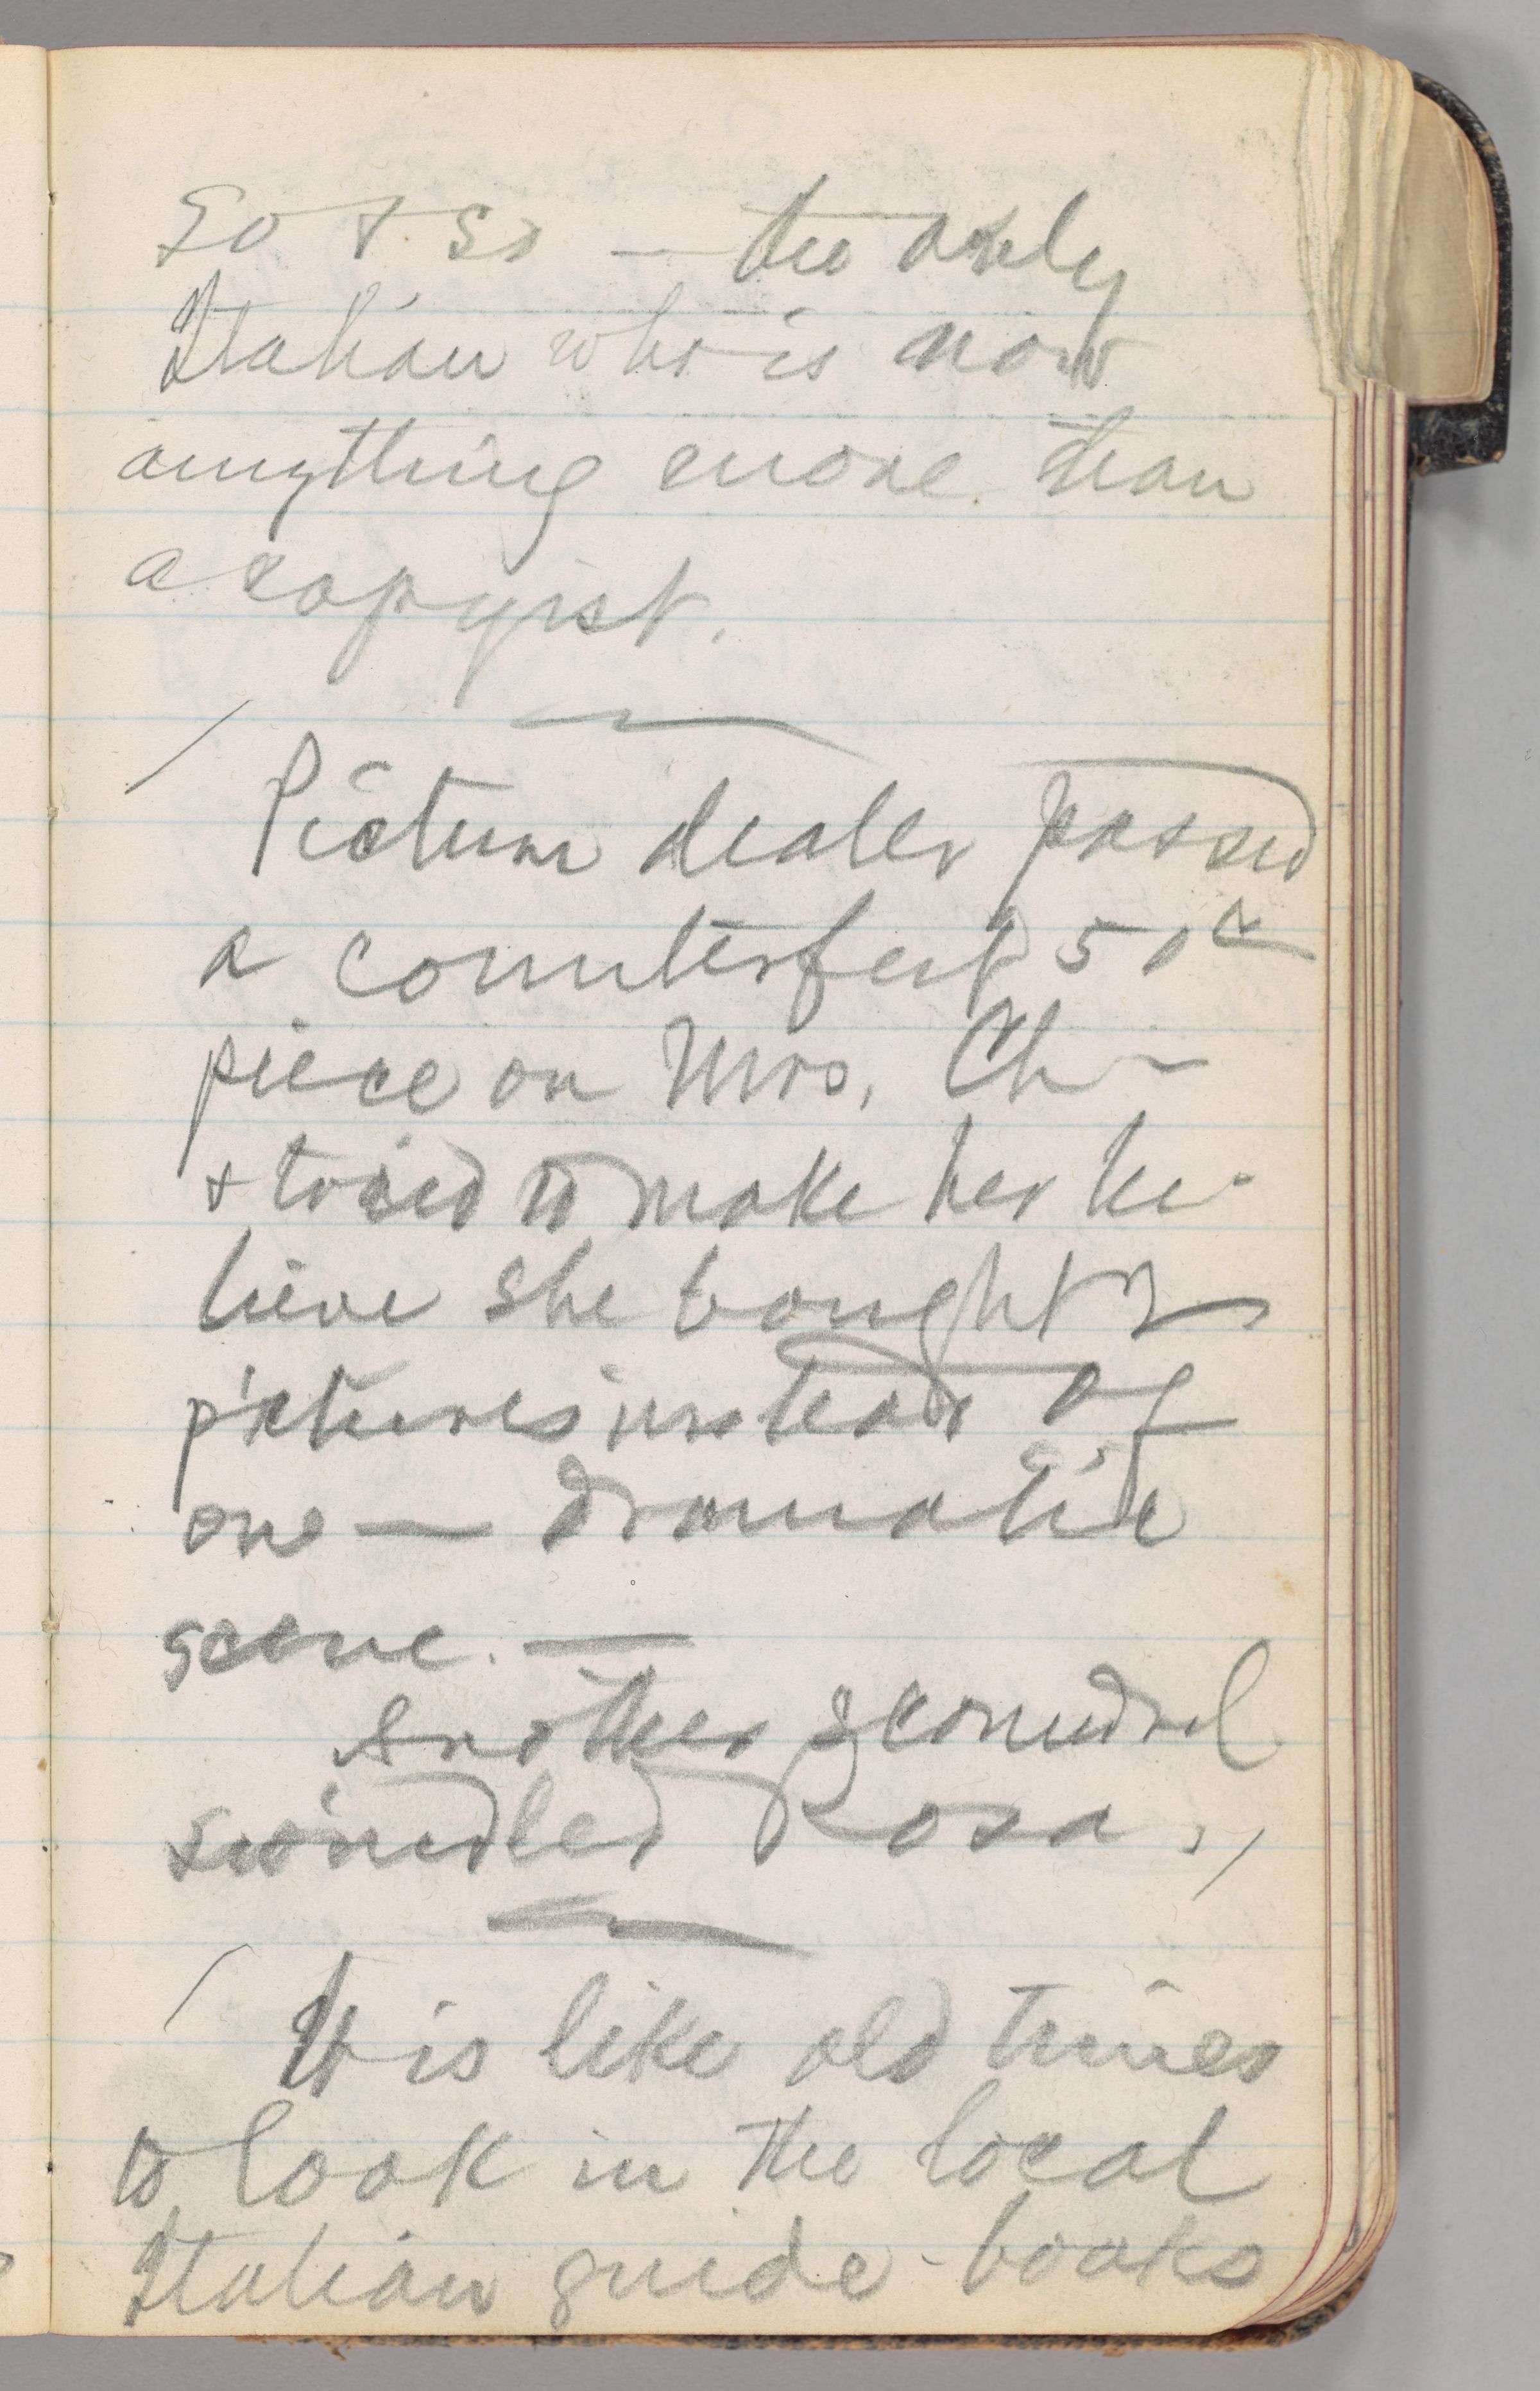 So & So — the only
Italian who is now
anything more than
a copyist.
Picture dealer passed
a counterfeit 50c
piece on Mrs. Ch—
& tried to make her be-
lieve she bought 2
pictures instead of
one — dramatic
scene. —
Another scoundrel
swindled Rosa.
It is like old times
to look in the local
Italian guide-books